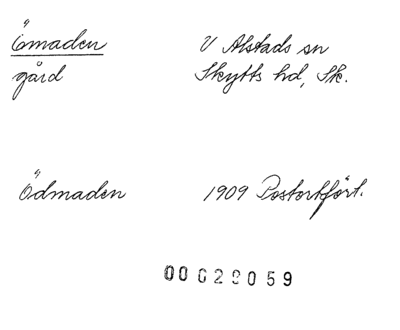 Ömaden V Alstads sn
gård Skytts hd, Sk.
Ödmaden 1909 Postortfört.
00029059